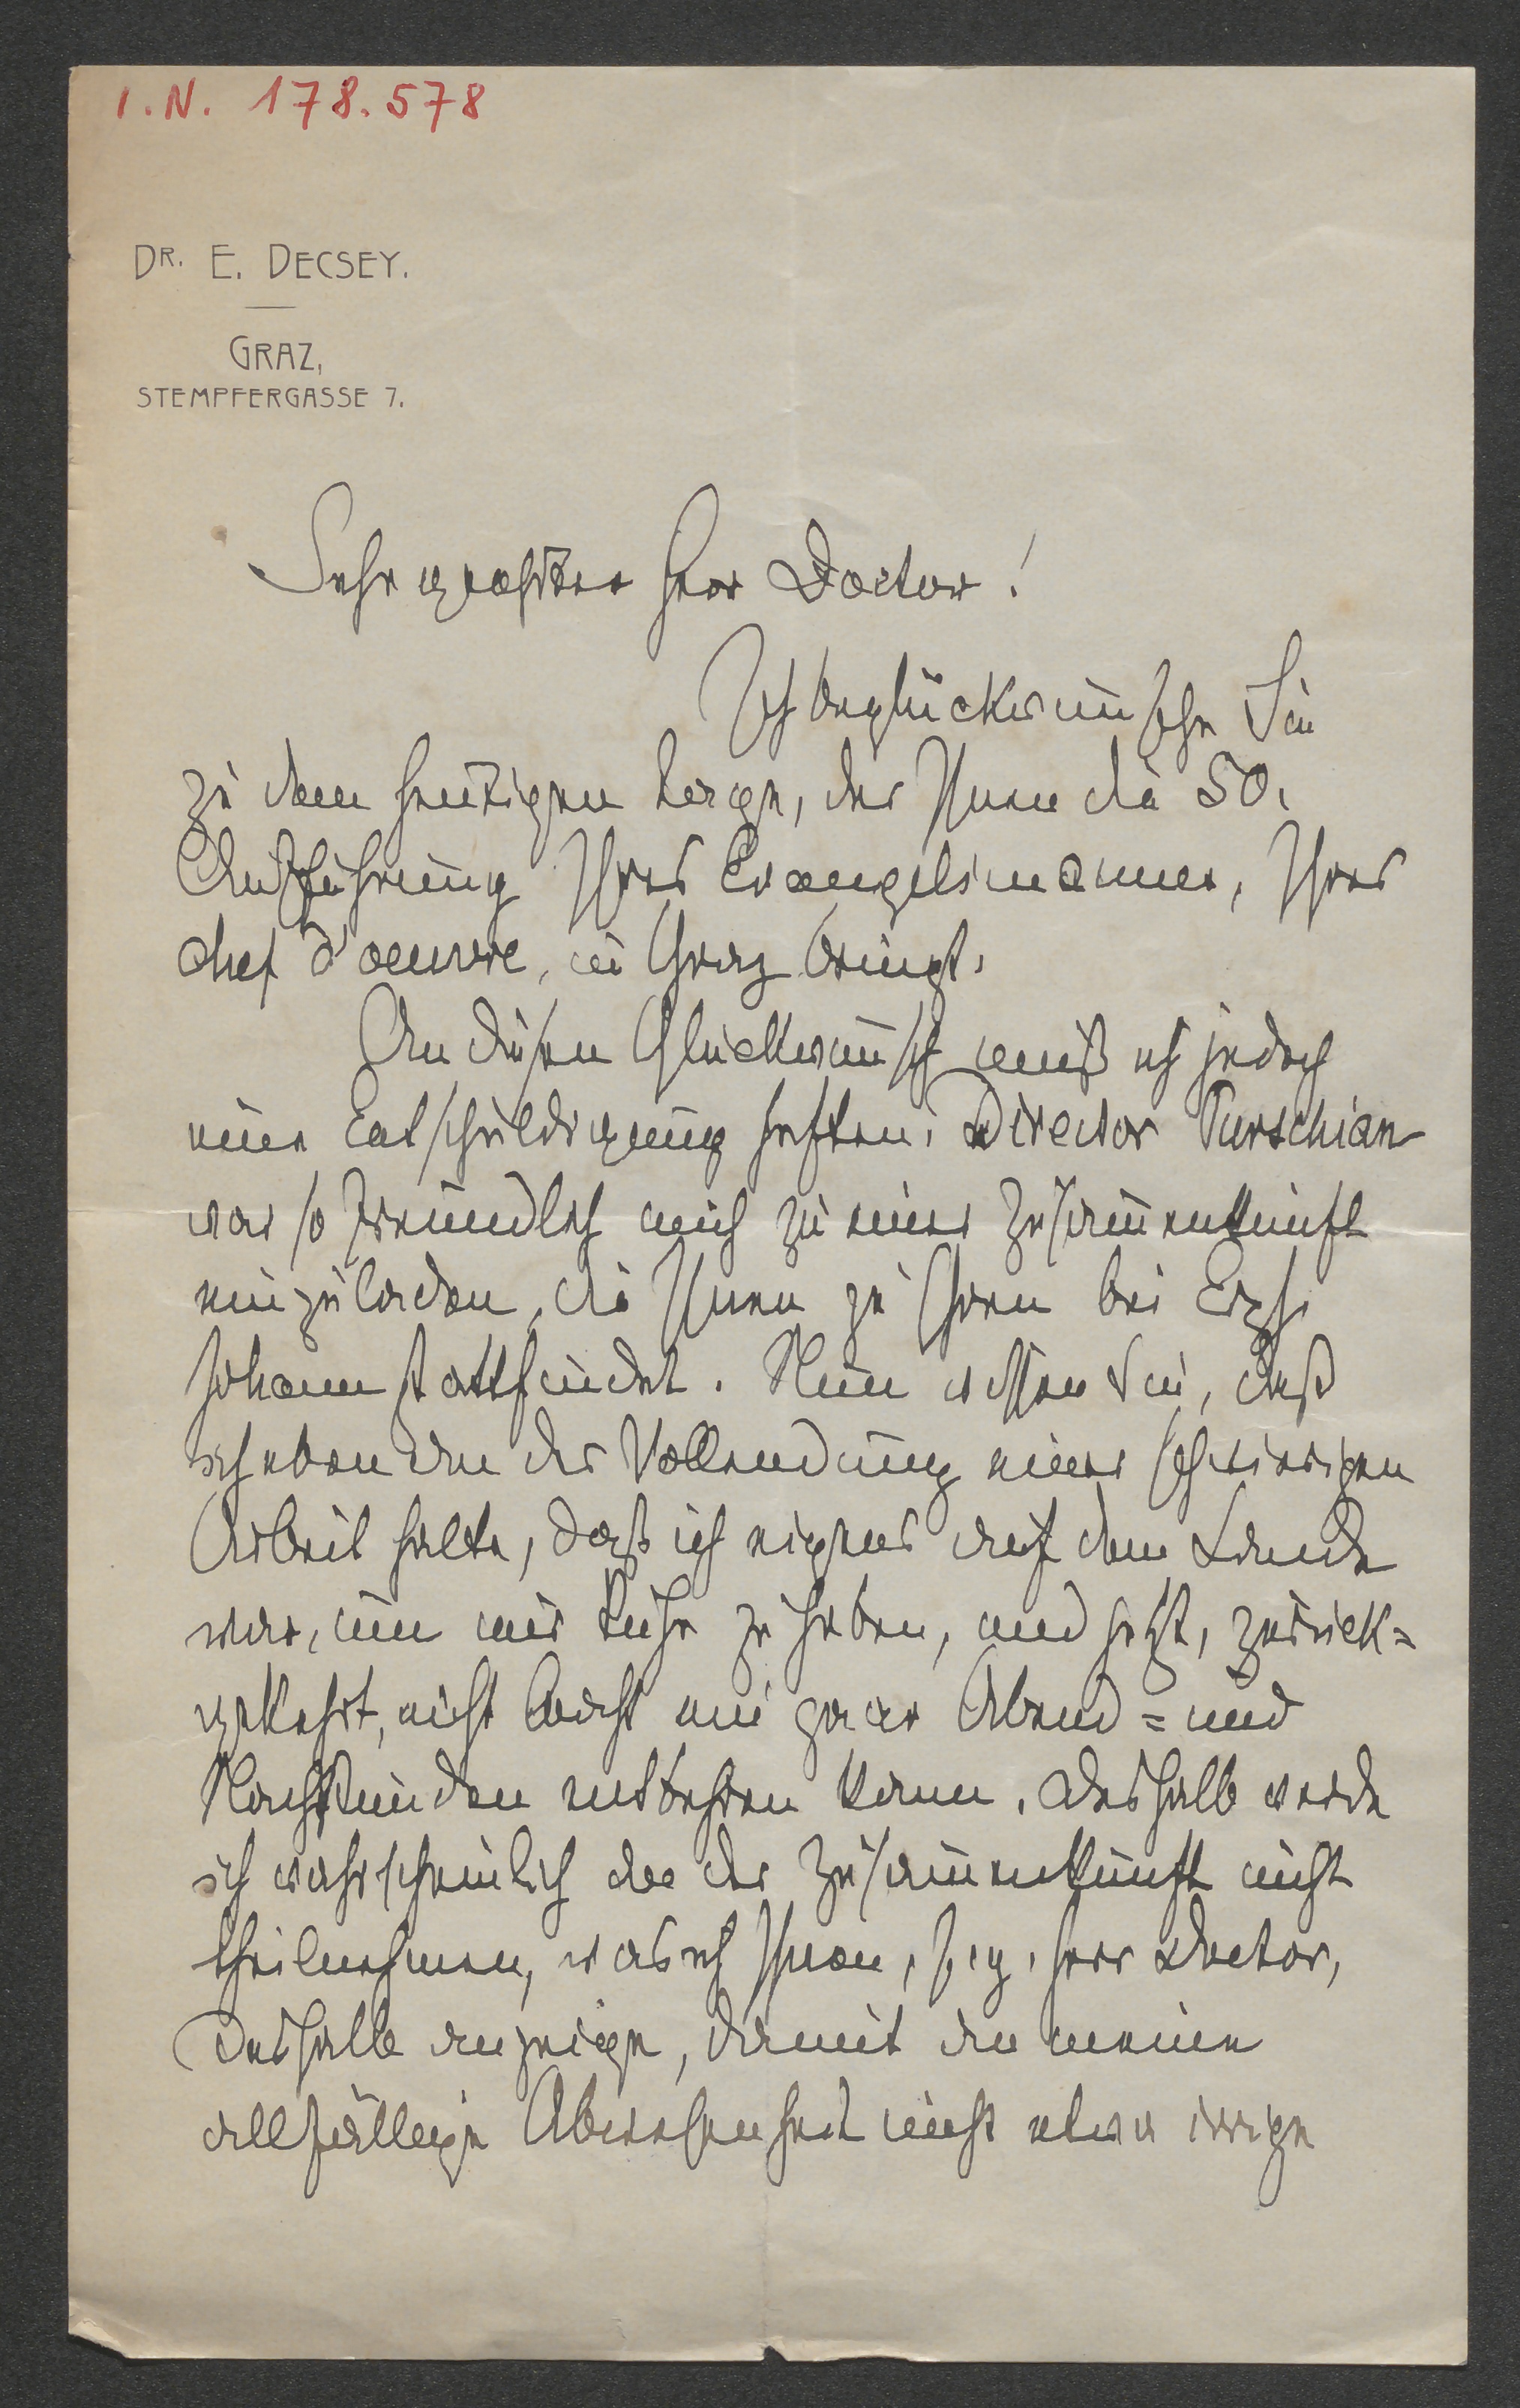 I.N. 178.578
DR. E. DECSEY.
GRAZ,
STEMPFERGASSE 7.
Sehr geehrter Herr Doctor!
Ich beglückwünsche Sie
zu dem heutigen Tage, der Ihnen die 50.
Aufführung Ihres Evangelimannes, Ihres
chef d'oeuvre, in Graz bringt.
An diesen Glückwunsch muß ich jedoch
eine Entschuldigung heften. Director Purschian
war so freundlich mich zu einer Zusam̄enkunft
einzuladen, die Ihnen zu Ehren bei Erzh.
Johann stattfindet. Nun wissen Sie, daß
ich eben an der Vollendung einer schwierigen
Arbeit halte, daß ich eigens auf dem Lande
war, um mir Ruhe zu haben, und jetzt, zurück=
gekehrt, nicht leicht ein paar Abend= und
Nachtstunden entbehren kann. Deshalb werde
ich wahrscheinlich an der Zusam̄enkunft nicht
theilnehmen, was ich Ihnen, s. g. Herr Doctor,
deshalb anzeige, damit an meine
allfällige Abwesenheit nicht etwa irrige